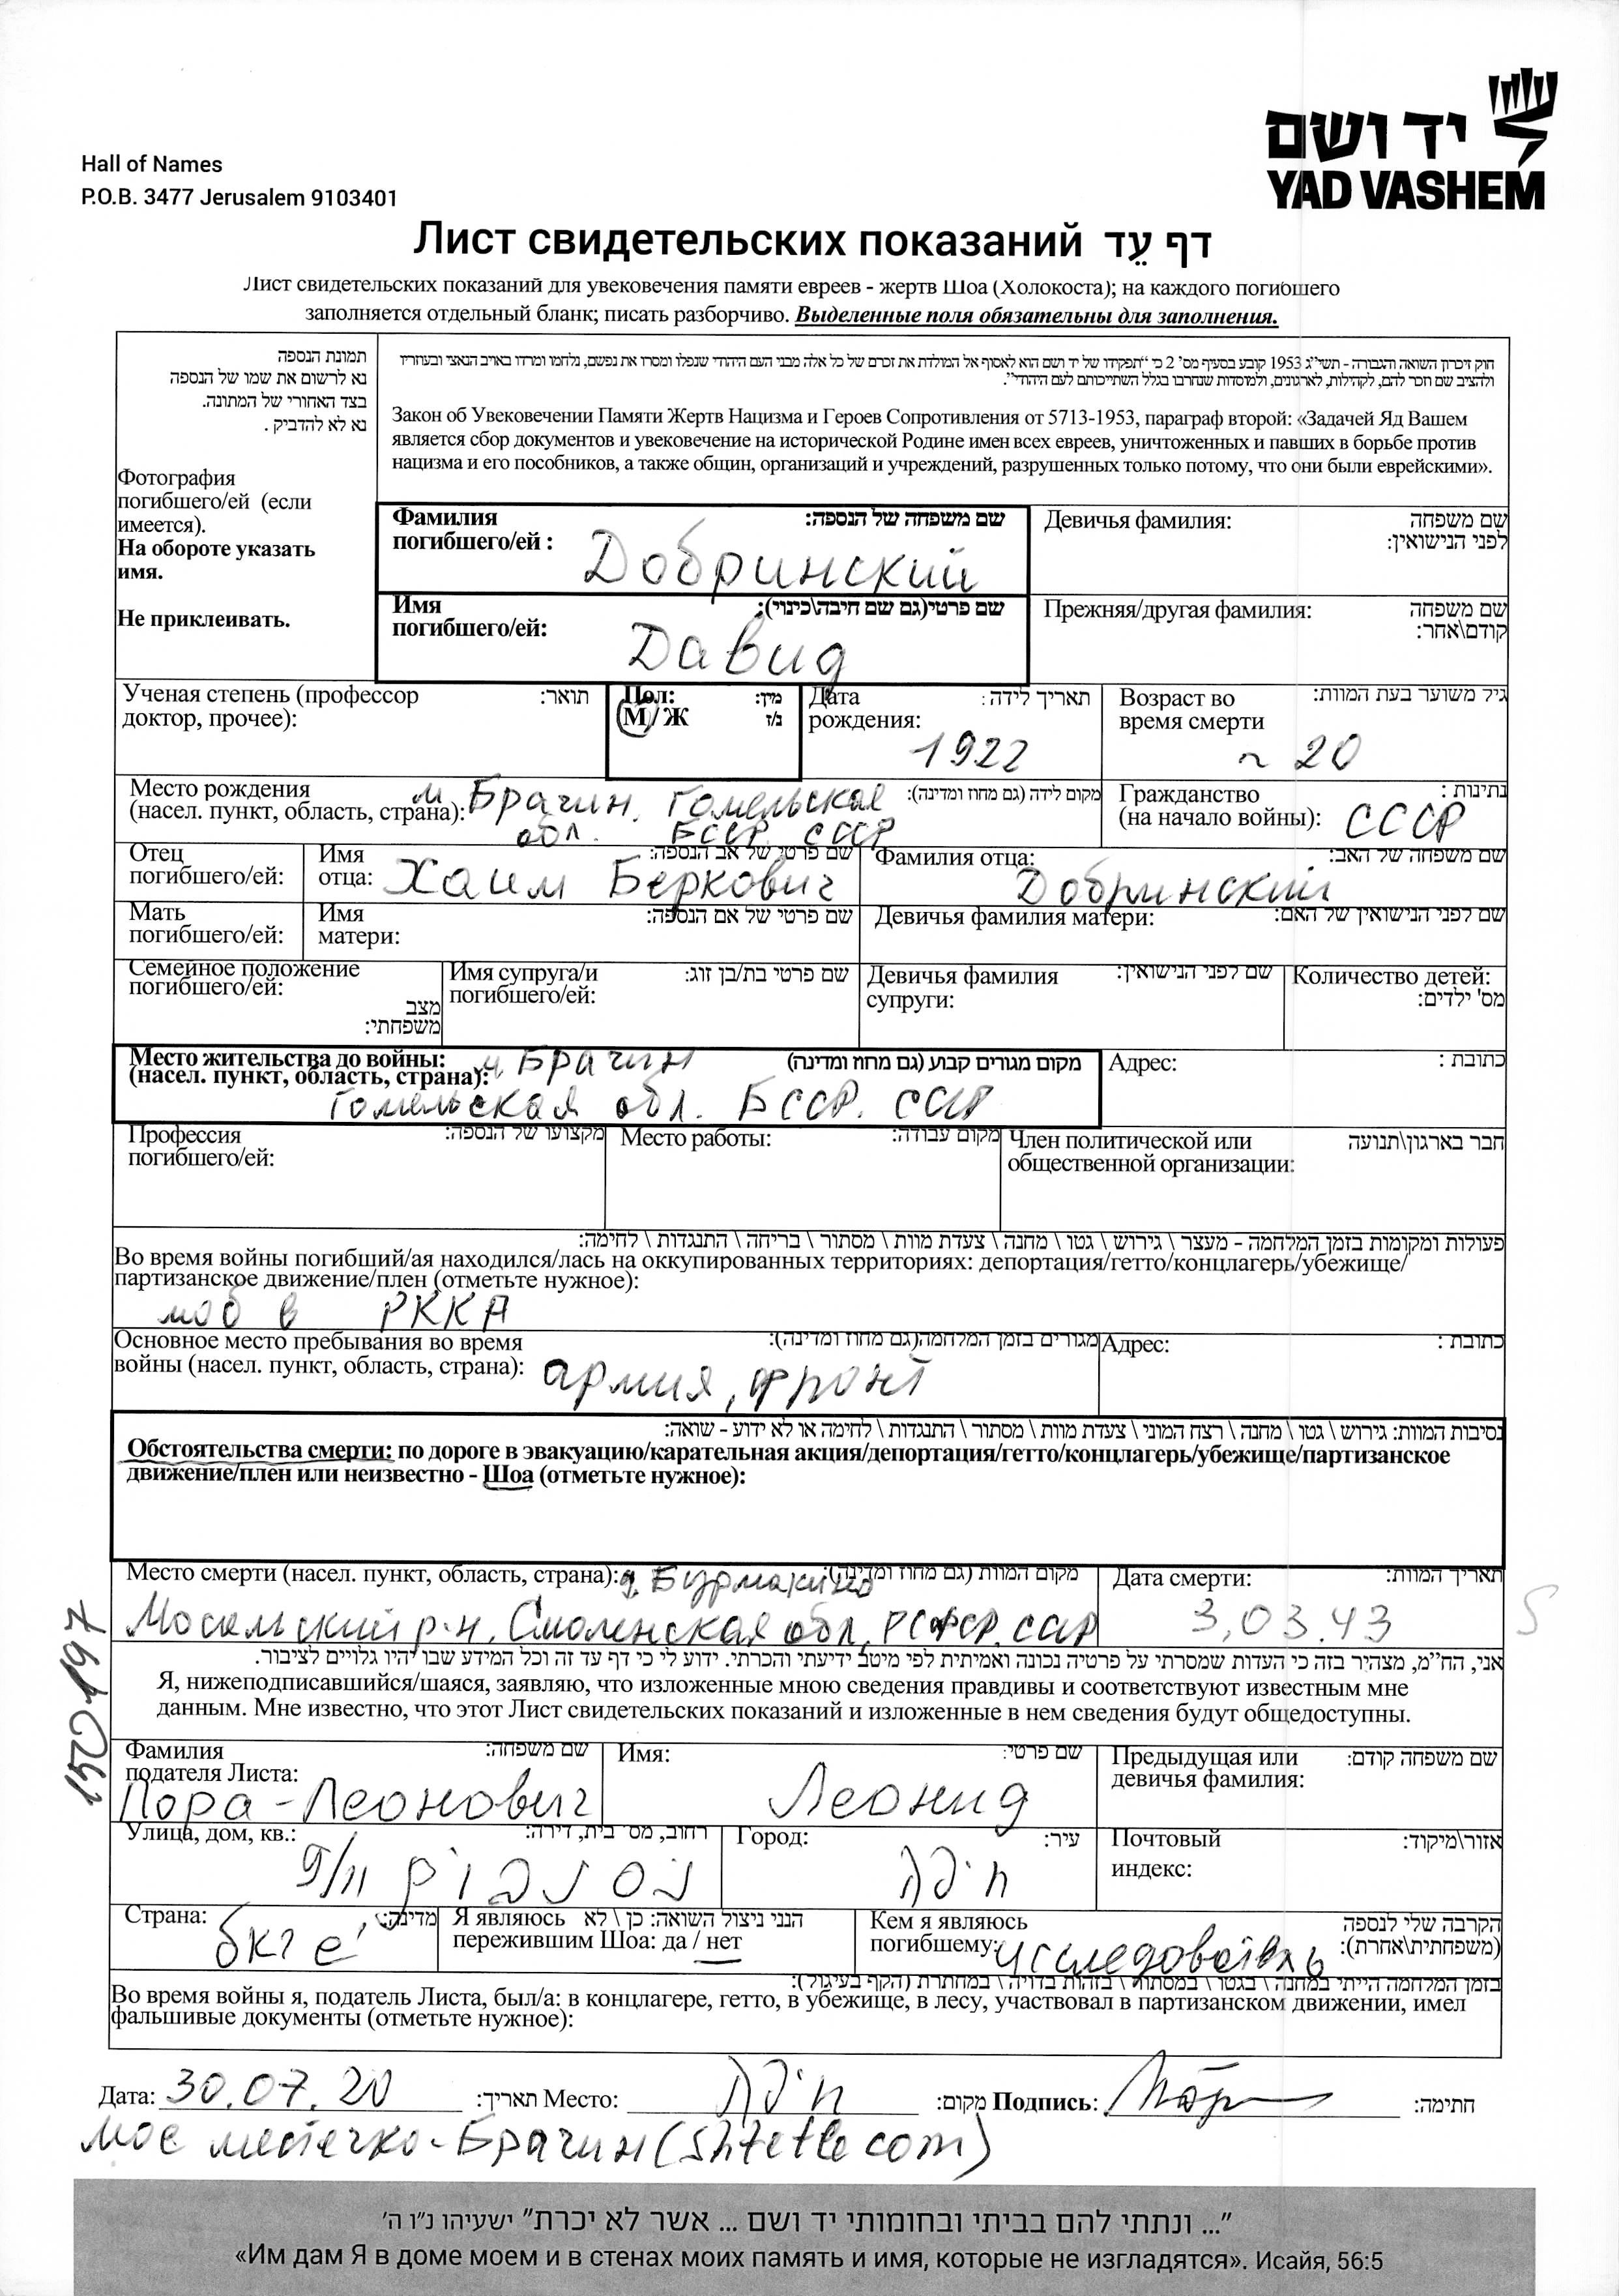 יד ושם
YAD VASHEM
Hall of Names
P.O.B. 3477 Jerusalem 9103401
Лист свидетельских показаний דף עֵד
Лист свидетельских показаний для увековечения памяти евреев - жертв Шоа (Холокоста); на каждого погибшего
заполняется отдельный бланк; писать разборчиво. Выделенные поля обязательны для заполнения.
תמונת הנספה
נא לרשום את שמו של הנספה
בצד האחורי של המתונה.
נא לא להדביק .
Фотография
погибшего/ей (если
имеется).
На обороте указать
имя.
Не приклеивать.
חוק זיכרון השואה והגבורה - תשי״ג 1953 קובע בסעיף מס' 2 כי "תפקידו של יד ושם הוא לאסוף אל המולדת את זכרם של כל אלה מבני העם היהודי שנפלו ומסרו את נפשם, נלחמו ומרדו באויב הנאצי ובעוזריו
ולהציב שם וזכר להם, לקהילות, לארגונים, ולמוסדות שנחרבו בגלל השתייכותם לעם היהודי".
Закон об Увековечении Памяти Жертв Нацизма и Героев Сопротивления от 5713-1953, параграф второй: «Задачей Яд Вашем
является сбор документов и увековечение на исторической Родине имен всех евреев, уничтоженных и павших в борьбе против
нацизма и его пособников, а также общин, организаций и учреждений, разрушенных только потому, что они были еврейскими».
Фамилия שם משפחה של הנספה:
погибшего/ей : Добринский
Девичья фамилия: שם משפחה
לפני הנישואין:
Имя שם פרטי(גם שם חיבה\כינוי):
погибшего/ей: Давид
Прежняя/другая фамилия: שם משפחה
קודם\אחר:
Ученая степень (профессор תואר:
доктор, прочее):
Пол: מין:
М / Ж נ/ז
Дата תאריך לידה:
рождения: 1922
Возраст во גיל משוער בעת המוות:
время смерти ~ 20
Место рождения м. Брагин, Гомельская מקום לידה (גם מחוז ומדינה):
(насел. пункт, область, страна): обл. БССР СССР
Гражданство נתינות :
(на начало войны): СССР
Отец Имя שם פרטי של אב הנספה:
погибшего/ей: отца: Хаим Беркович
Фамилия отца: Добринский שם משפחה של האב:
Мать Имя שם פרטי של אם הנספה:
погибшего/ей: матери:
Девичья фамилия матери: שם לפני הנישואין של האם:
Семейное положение
погибшего/ей:
מצב
משפחתי:
Имя супруга/и שם פרטי בת/בן זוג:
погибшего/ей:
Девичья фамилия שם לפני הנישואין:
супруги:
Количество детей:
מס' ילדים:
Место жительства до войны: м. Брагин מקום מגורים קבוע (גם מחוז ומדינה)
(насел. пункт, область, страна):
Гомельская обл. БССР. СССР
Адрес: כתובת :
Профессия מקצועו של הנספה:
погибшего/ей:
Место работы: מקום עבודה:
Член политической или חבר בארגון\תנועה
общественной организации:
פעולות ומקומות בזמן המלחמה - מעצר \ גירוש \ גטו \ מחנה \ צעדת מוות \ מסתור \ בריחה \ התנגדות \ לחימה:
Во время войны погибший/ая находился/лась на оккупированных территориях: депортация/гетто/концлагерь/убежище/
партизанское движение/плен (отметьте нужное):
моб в РККА
Основное место пребывания во время מגורים בזמן המלחמה(גם מחוז ומדינה):
войны (насел. пункт, область, страна): армия, фронт
Адрес: כתובת :
נסיבות המוות: גירוש \ גטו \ מחנה \ רצח המוני \ צעדת מוות \ מסתור \ התנגדות \ לחימה או לא ידוע - שואה:
Обстоятельства смерти: по дороге в эвакуацию/карательная акция/депортация/гетто/концлагерь/убежище/партизанское
движение/плен или неизвестно - Шоа (отметьте нужное):
Место смерти (насел. пункт, область, страна): д. Бурмакино מקום המוות (גם מחוז ומדינה):
Мосальский р-н, Смоленская обл, РСФСР. СССР
Дата смерти: תאריך המוות:
3,03.43
5
אני, הח״מ, מצהיר בזה כי העדות שמסרתי על פרטיה נכונה ואמיתית לפי מיטב ידיעתי והכרתי. ידוע לי כי דף עד זה וכל המידע שבו יהיו גלויים לציבור.
Я, нижеподписавшийся/шаяся, заявляю, что изложенные мною сведения правдивы и соответствуют известным мне
данным. Мне известно, что этот Лист свидетельских показаний и изложенные в нем сведения будут общедоступны.
150197
Фамилия שם משפחה:
подателя Листа:
Лора-Леонович
Имя: שם פרטי:
Леонид
Предыдущая или שם משפחה קודם:
девичья фамилия:
Улица, дом, кв.: רחוב, מס' בית, דירה:
9/11
Город: עיר:
חיפה
Почтовый אזור\מיקוד:
индекс:
Страна: מדינה:
Я являюсь הנני ניצול השואה: כן \ לא
пережившим Шоа: да / нет
Кем я являюсь הקרבה שלי לנספה
погибшему: исследователь (משפחתית\אחרת):
בזמן המלחמה הייתי במחנה \ בגטו \ במסתור \ בזהות בדויה \ במחתרת (הקף בעיגול):
Во время войны я, податель Листа, был/а: в концлагере, гетто, в убежище, в лесу, участвовал в партизанском движении, имел
фальшивые документы (отметьте нужное):
Дата: 30.07.20 תאריך: Место: חיפה מקום: Подпись: חתימה:
Мое местечко-Брагин(shtetle com)
"... ונתתי להם בביתי ובחומותי יד ושם ... אשר לא יכרת" ישעיהו נ״ו ה'
«Им дам Я в доме моем и в стенах моих память и имя, которые не изгладятся». Исайя, 56:5